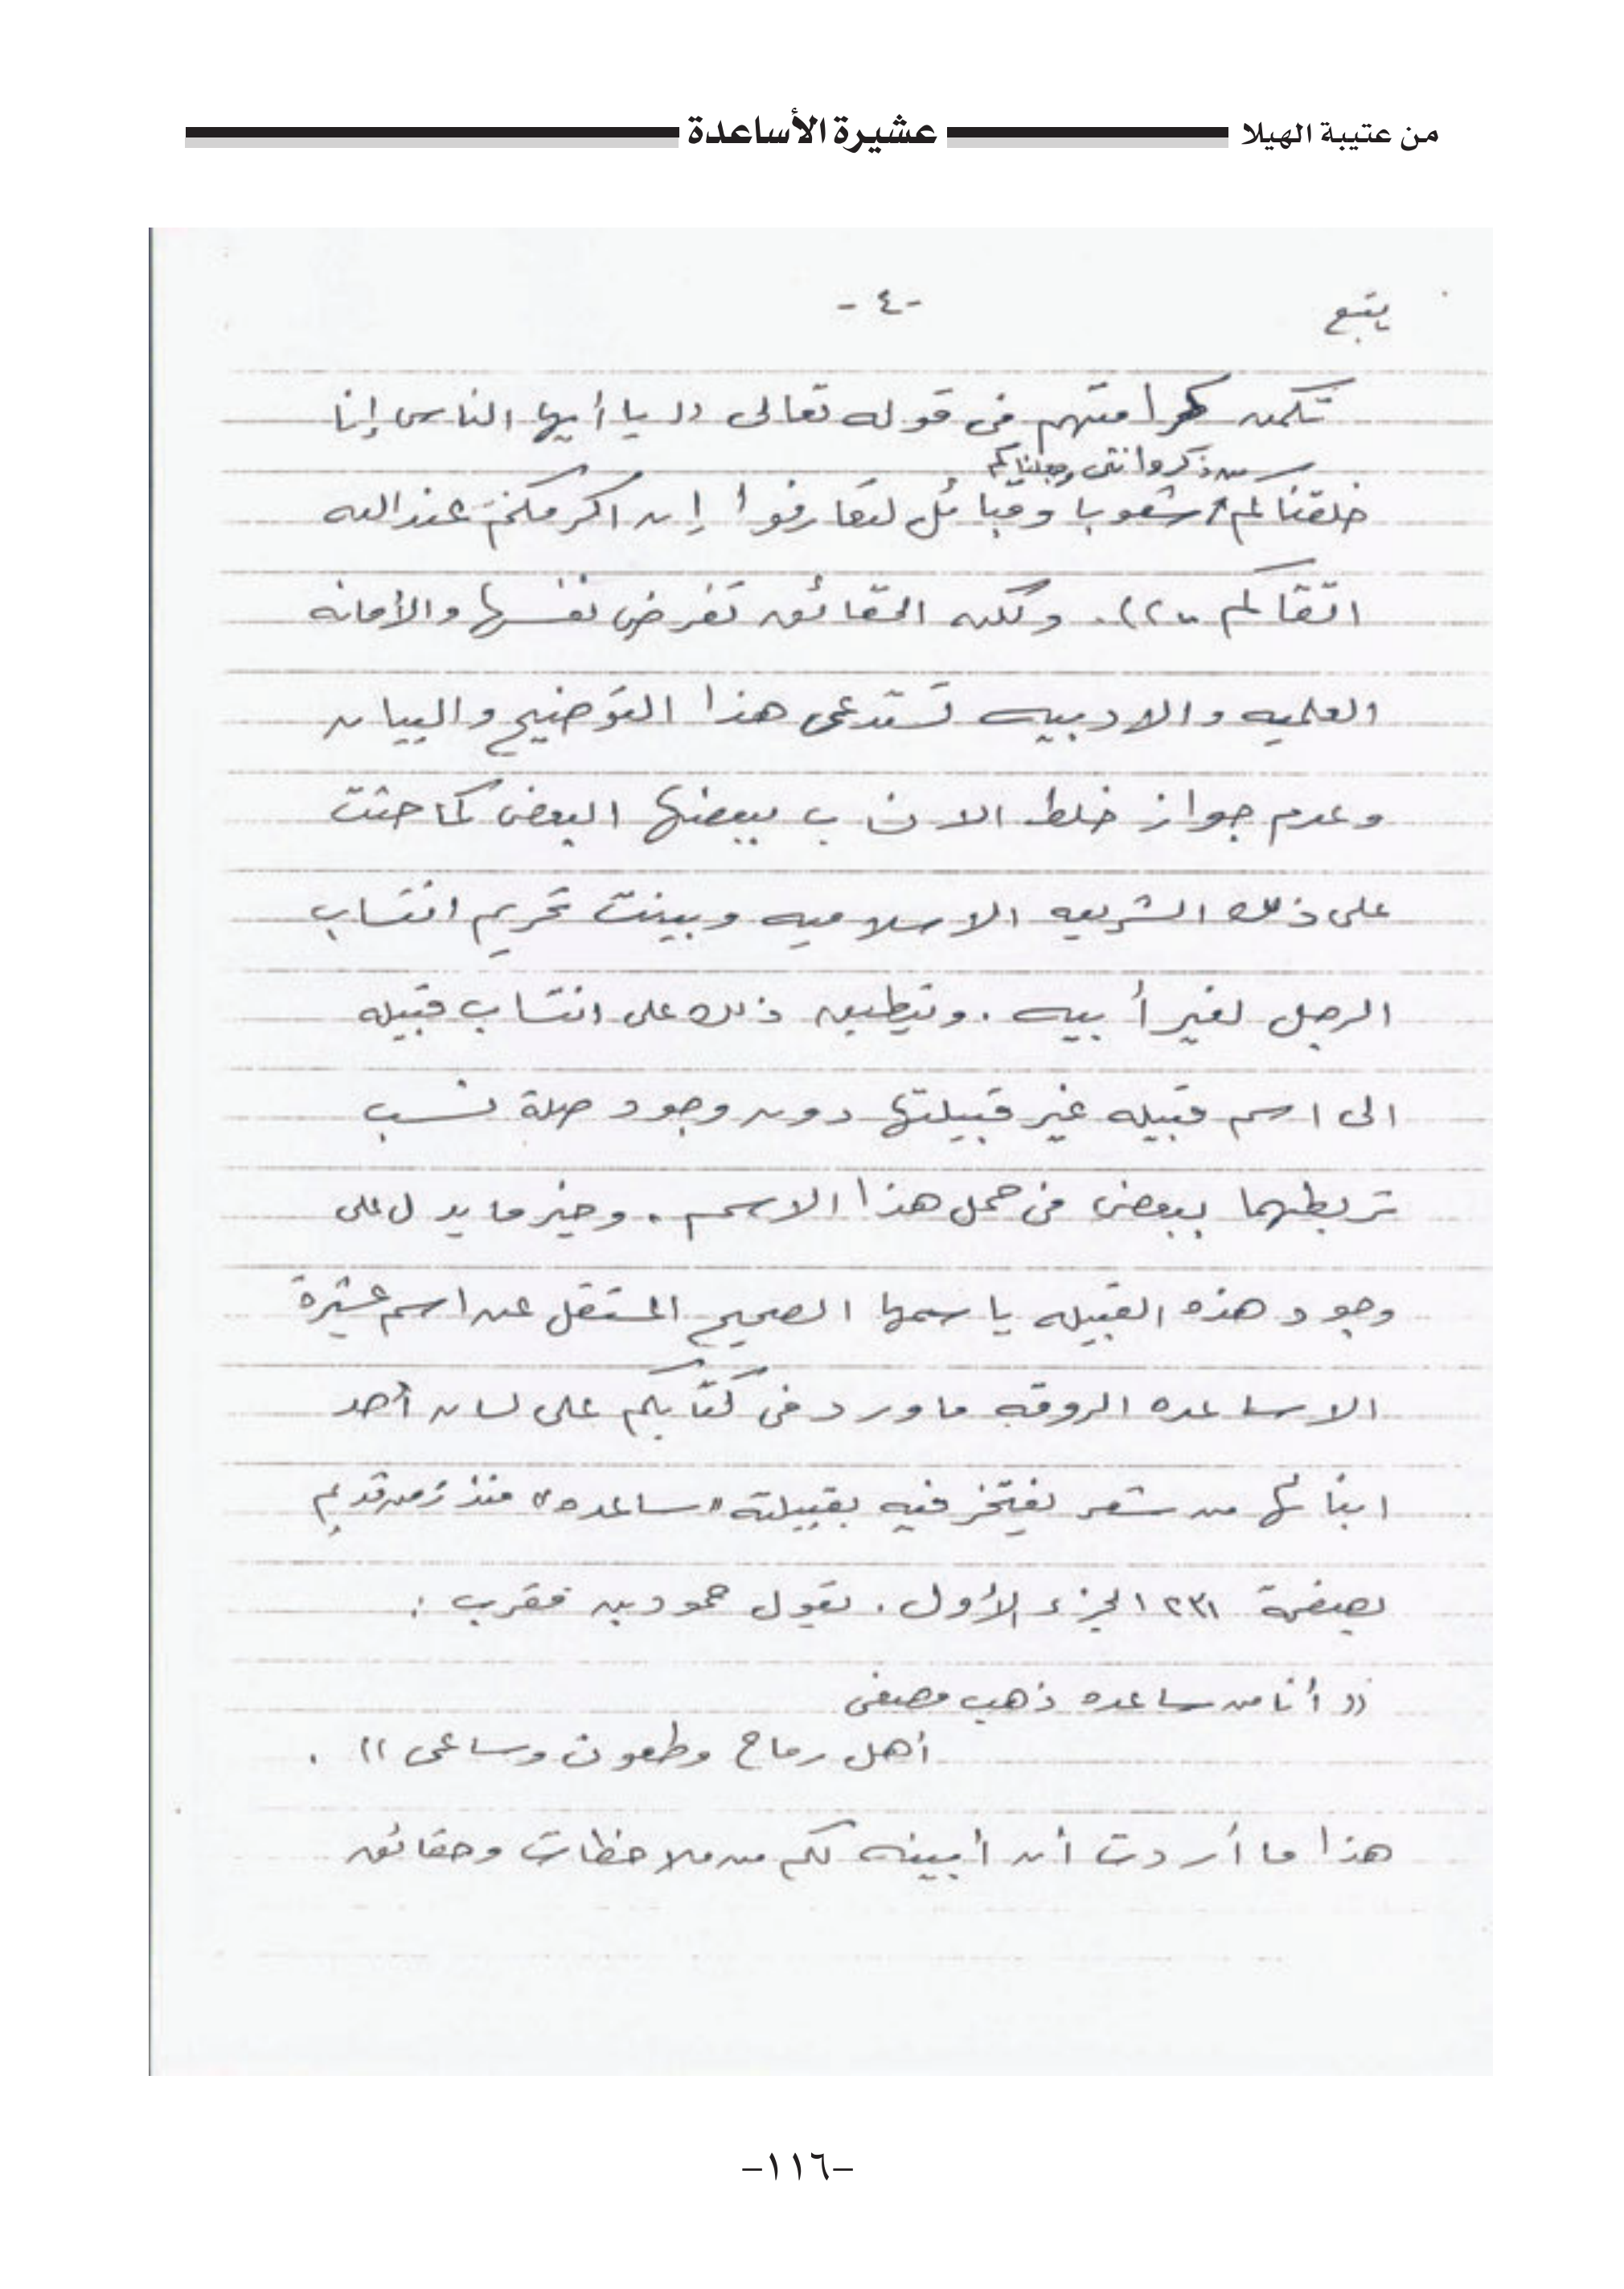 من عتيبة الهيلا عشيرة الأساعدة
يتبع -٤-
تكمن كرامتهم في قوله تعالى ((يا أيها الناس إنا
من ذكر وانثى وجعلناكم
خلقناكم شعوبا وقبائل لتعارفوا إن اكرمكم عند الله
اتقاكم)). ولكن الحقائق تفرض نفسها والأمانه
العلميه والادبيه تستدعي هذا التوضيح والبيان
وعدم جواز خلط الانساب ببعضها البعض كما حثت
على ذلك الشريعه الاسلاميه وبينت تحريم انتساب
الرجل لغير أبيه. وينطبق ذلك على انتساب قبيله
الى اسم قبيله غير قبيلتها دون وجود صلة نسب
تربطهما ببعض في حمل هذا الاسم. وخير ما يدل على
وجود هذه القبيله باسمها الصحيح المستقل عن اسم عشيرة
الاساعده الروقه ما ورد في كتابكم على لسان أحد
ابنائها من شعر يفتخر فيه بقبيلته "ساعده" منذ زمن قديم
بصفحة ٢٣١ الجزء الأول. يقول حمود بن مقرب:
((أنا من ساعده ذهب مصفى
أهل رماح وطعون وساعى)).
هذا ما أردت أن أبينه لكم من ملاحظات وحقائق
-١١٦-